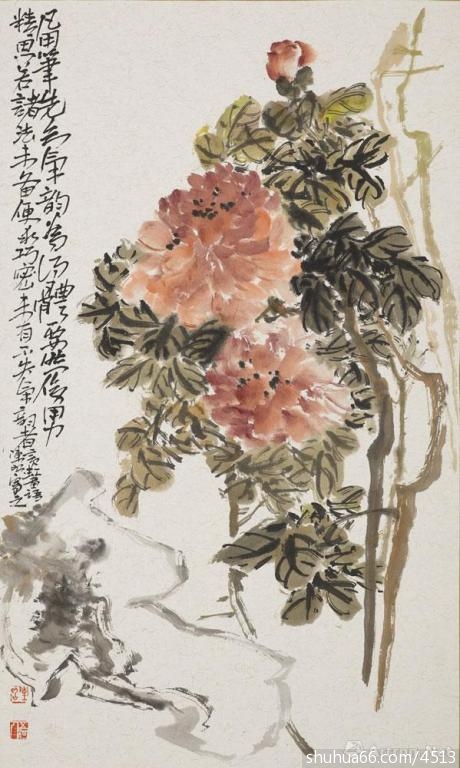 凡用筆先求氣韻次體要然後用
精思若諸法未備便求巧密未有不失氣韻者
寫之
shuhua66.com/4513